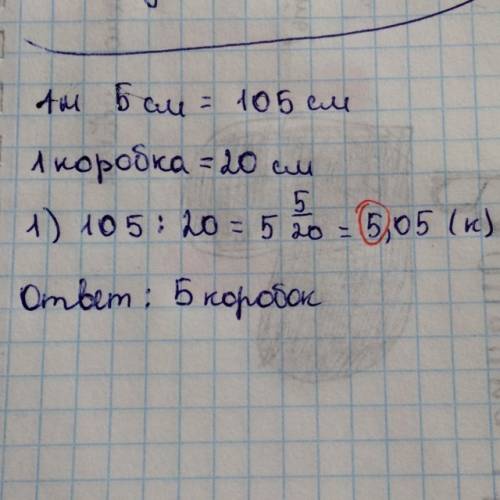 1м 5 см = 105 см
1 коробка = 20 см
1) 105 : 20 = 5 5/20 = 5,05 (к)
Ответ : 5 коробок